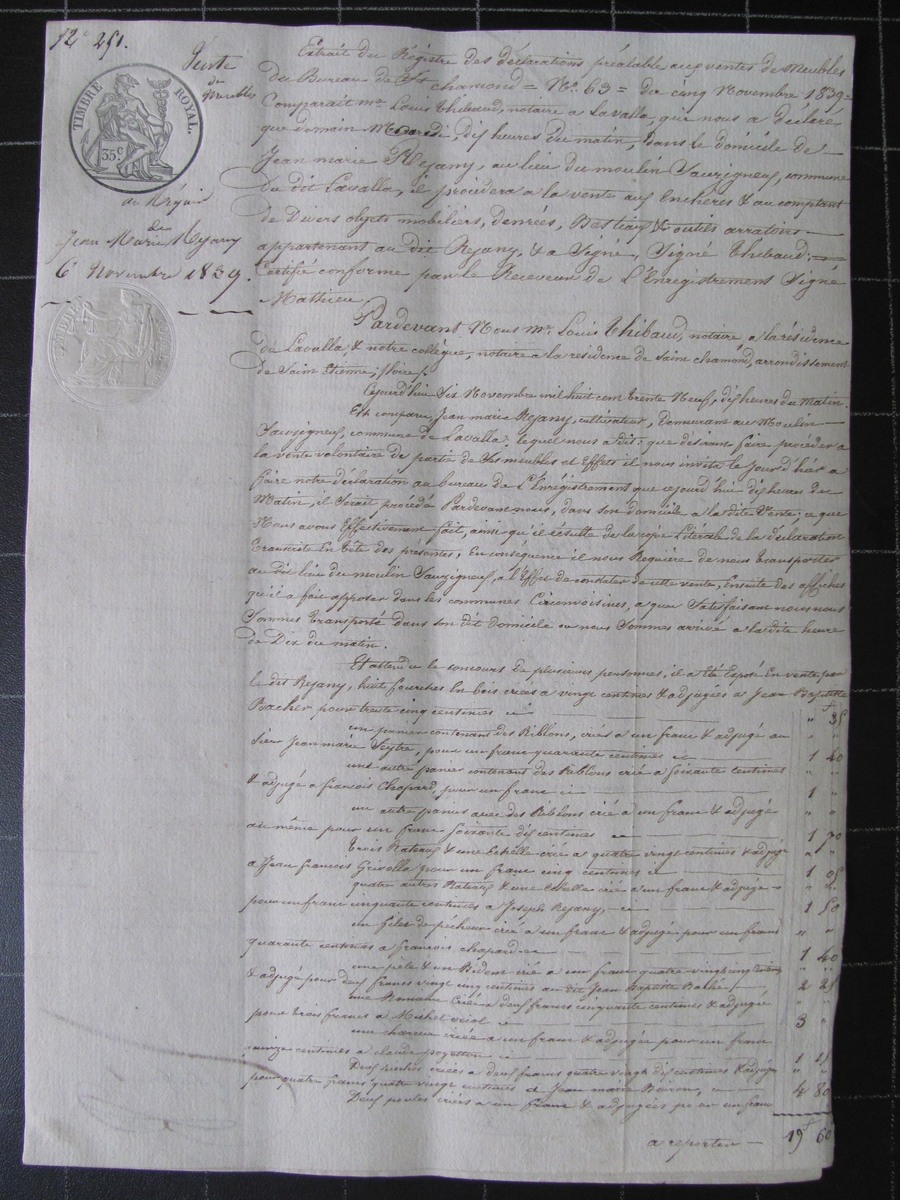 12e 251.
Vente
de
Meubles
TIMBRE ROYAL.
35c
au Réquis
de
Jean Marie Rejany
6 Novembre 1839.
Extrait du Régistre des déclarations préalable aux ventes de Meubles
du Bureau de St chamond = No. 63 = du cinq Novembre 1839 =
Comparait me. Louis Thibaud, notaire a Lavalla, que nous a déclaré
que demain Mercredi, dix heures du matin, Dans le domicile de
Jean marie Rejany, au lieu du moulin Sauzigneux, commune
du dit Lavalla, il procédera a la vente aux Enchères & au comptant
de Divers objets mobiliers, denrées, Bestiaux & outils arratoirs
appartenant au dit Rejany, & a Signé, Signé Thibaud;
Certifié conforme par le Receveur de L'Enregistrement Signé
Mathieu.
Pardevant Nous me. Louis Thibaud, notaire, a la résidence
de Lavalla, & notre collègue, notaire a la residence de Saint chamond, arrondissement
de Saint Etienne, (Loire).
Cejourd'hui Six Novembre mil huit cent trente Neuf, dix heures du Matin.
Est comparu, Jean marie Rejany, cultivateur, Demeurant au Moulin
Sauzigneux, commune de Lavalla; lequel nous a dit: que désirant faire procéder a
la vente volontaire de partie de Ses meubles et Effets il nous invita le jour d'hier a
faire notre déclaration au bureau de L'Enrégistrement que cejourd'hui dix heures du
Matin, il Serait procédé Pardevant nous, dans son domicile a la dite Vente; ce que
Nous avons Effectivement fait, ainsi qu'il résulte de la copie Litérale de la déclaration
transcrite En tête des présentes, En conséquence il nous Requière de nous transporter
au dit lieu du moulin Sauzigneux, a l'Effet de constater cette vente, Ensuite des affiches
qu'il a fait apposer dans les communes Circonvoisines, a quoi Satisfaisant nous nous
Sommes transporté dans son dit domicile ou nous Sommes arrivé a la dite heure
de Dix du matin.
Et attendu le concours de plusieurs personnes, il a été Exposé En vente par
le dit Rejany, huit fourches En bois criées a vingt centimes & adjugées a Jean Baptiste
Bacher pour trente cinq centimes ci " f 35
un panier contenant des Riblons, criés a un franc & adjugé au " "
Sieur Jean marie Seytre, pour un franc quarante centimes ci 1 40
un autre panier contenant des Riblons crié a Soixante centimes
& adjugé a françois Chapard, pour un franc ci 1 "
un autre panier avec des Riblons crié a un franc & adjugé " "
au même pour un franc Soixante dix centimes ci 1 70
trois Rateaux & une Echelle crié a quatre vingt centimes & adjugé " "
a Jean francois Grivolla pour un franc cinq centimes ci 1 05
quatre autres Rateaux & une Echelle crié a un franc & adjugé " "
pour un franc cinquante centimes a Joseph Rejany, ci 1 50
un filet de pécheur crié a un franc & adjugé pour un franc " "
quarante centimes a francois chapard ci 1 40
une pèle & un Bident crié a un franc quatre vingt cinq centimes " "
& adjugé pour deux francs vingt cinq centimes au dit Jean Baptiste 2 25
une Romaine criée a deux francs cinquante centimes & adjugée " "
pour trois francs a Michel ci 3 "
une criée a un franc & adjugée pour un franc
quinze centimes a claude ci 1 15
Deux criées a deux francs quatre vingt dix centimes & adjugé " "
pour quatre francs quatre vingt centimes a Jean marie ci 4 80
Deux criées a un franc & adjugées pour un franc
a reporter 19f 60